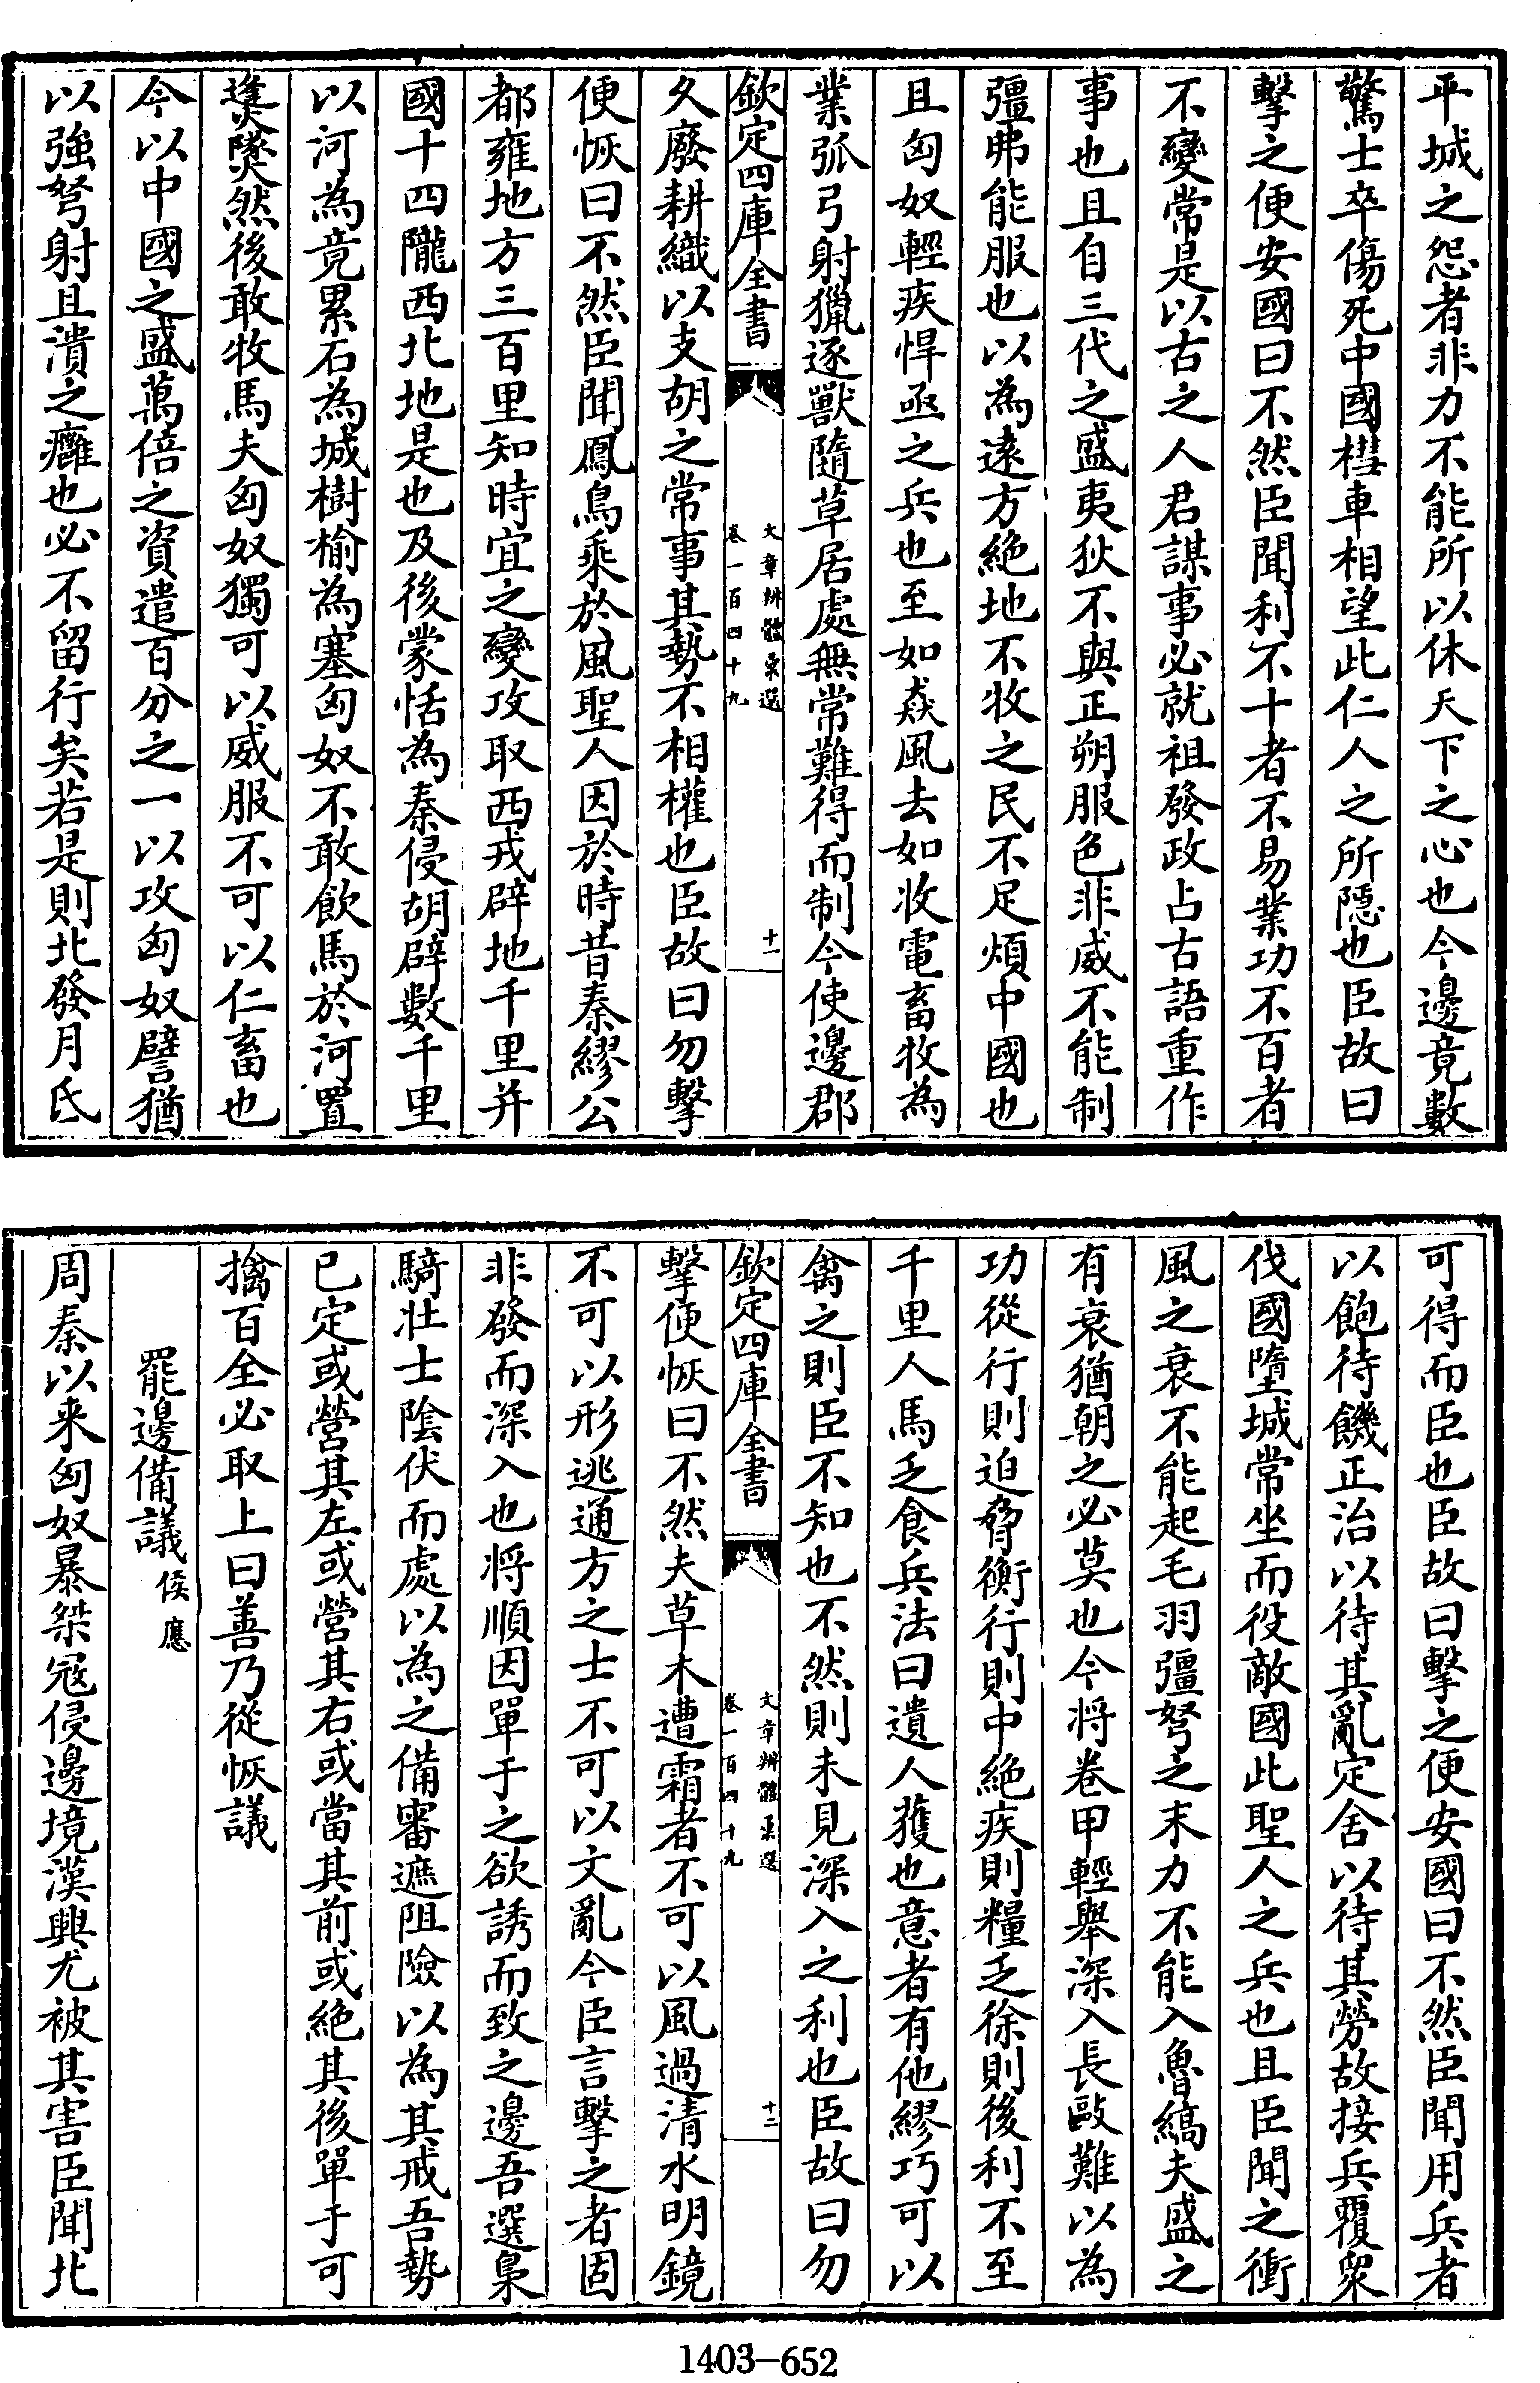 平城之怨者非力不能所以休天下之心也今邊竟數
驚士卒傷死中國槥車相望此仁人之所隱也臣故曰
擊之便安國曰不然臣聞利不十者不易業功不百者
不變常是以古之人君謀事必就祖發政占古語重作
事也且自三代之盛夷狄不與正朔服色非威不能制
彊弗能服也以為遠方絶地不牧之民不足煩中國也
且匈奴輕疾悍亟之兵也至如猋風去如收電畜牧為
業弧弓射獵逐獸隨草居處無常難得而制今使邊郡
欽定四庫全書
文章辨體彚選
卷一百四十九
十一
久廢耕織以支胡之常事其勢不相權也臣故曰勿擊
便恢曰不然臣聞鳳鳥乘於風聖人因於時昔秦繆公
都雍地方三百里知時宜之變攻取西戎辟地千里并
國十四隴西北地是也及後蒙恬為秦侵胡辟數千里
以河為竟累石為城樹榆為塞匈奴不敢飲馬於河置
㷭㸂然後敢牧馬夫匈奴獨可以威服不可以仁畜也
今以中國之盛萬倍之資遣百分之一以攻匈奴譬猶
以強弩射且潰之癰也必不留行矣若是則北發月氏
可得而臣也臣故曰擊之便安國曰不然臣聞用兵者
以飽待饑正治以待其亂定舍以待其勞故接兵覆衆
伐國墮城常坐而役敵國此聖人之兵也且臣聞之衝
風之衰不能起毛羽彊弩之末力不能入魯縞夫盛之
有衰猶朝之必莫也今将卷甲輕舉深入長敺難以為
功從行則迫脅衡行則中絶疾則糧乏徐則後利不至
千里人馬乏食兵法曰遺人獲也意者有他繆巧可以
禽之則臣不知也不然則未見深入之利也臣故曰勿
欽定四庫全書
文章辨體彚選
卷一百四十九
十二
擊便恢曰不然夫草木遭霜者不可以風過清水明鏡
不可以形逃通方之士不可以文亂今臣言擊之者固
非發而深入也将順因單于之欲誘而致之邊吾選梟
騎壯士陰伏而處以為之備審遮阻險以為其戒吾勢
已定或營其左或營其右或當其前或絶其後單于可
擒百全必取上曰善乃從恢議
罷邊備議 侯應
周秦以来匈奴暴桀冦侵邊境漢興尤被其害臣聞北
1403-652